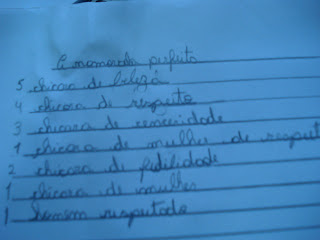 A namorada perfeita
5 chicara de beleza
4 chicara de respeito
3 chicara de senceridade
1 chicara de mulher de respeut
2 chicara de fidilidade
1 chicara de mulher
1 homem respeitado